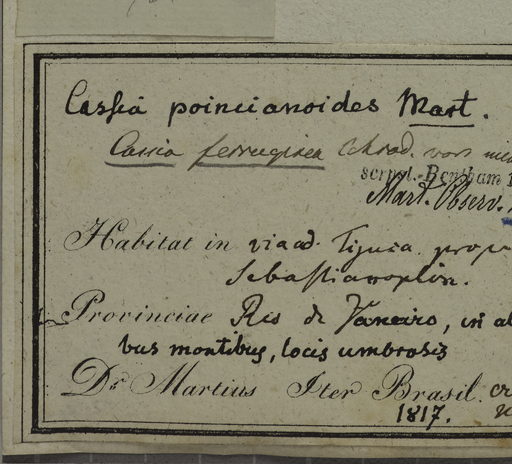 Cassia poincianoides Mart.
Cassia ferruginea Schrad.
script. Bentham
Mart. Observ.
Habitat in via ad Tijuca prope
Sebastianoplin.
Provinciae Rio de Janeiro, in al
bus montibus, locis umbrosis
Dr. Martius Iter Brasil.
1817.